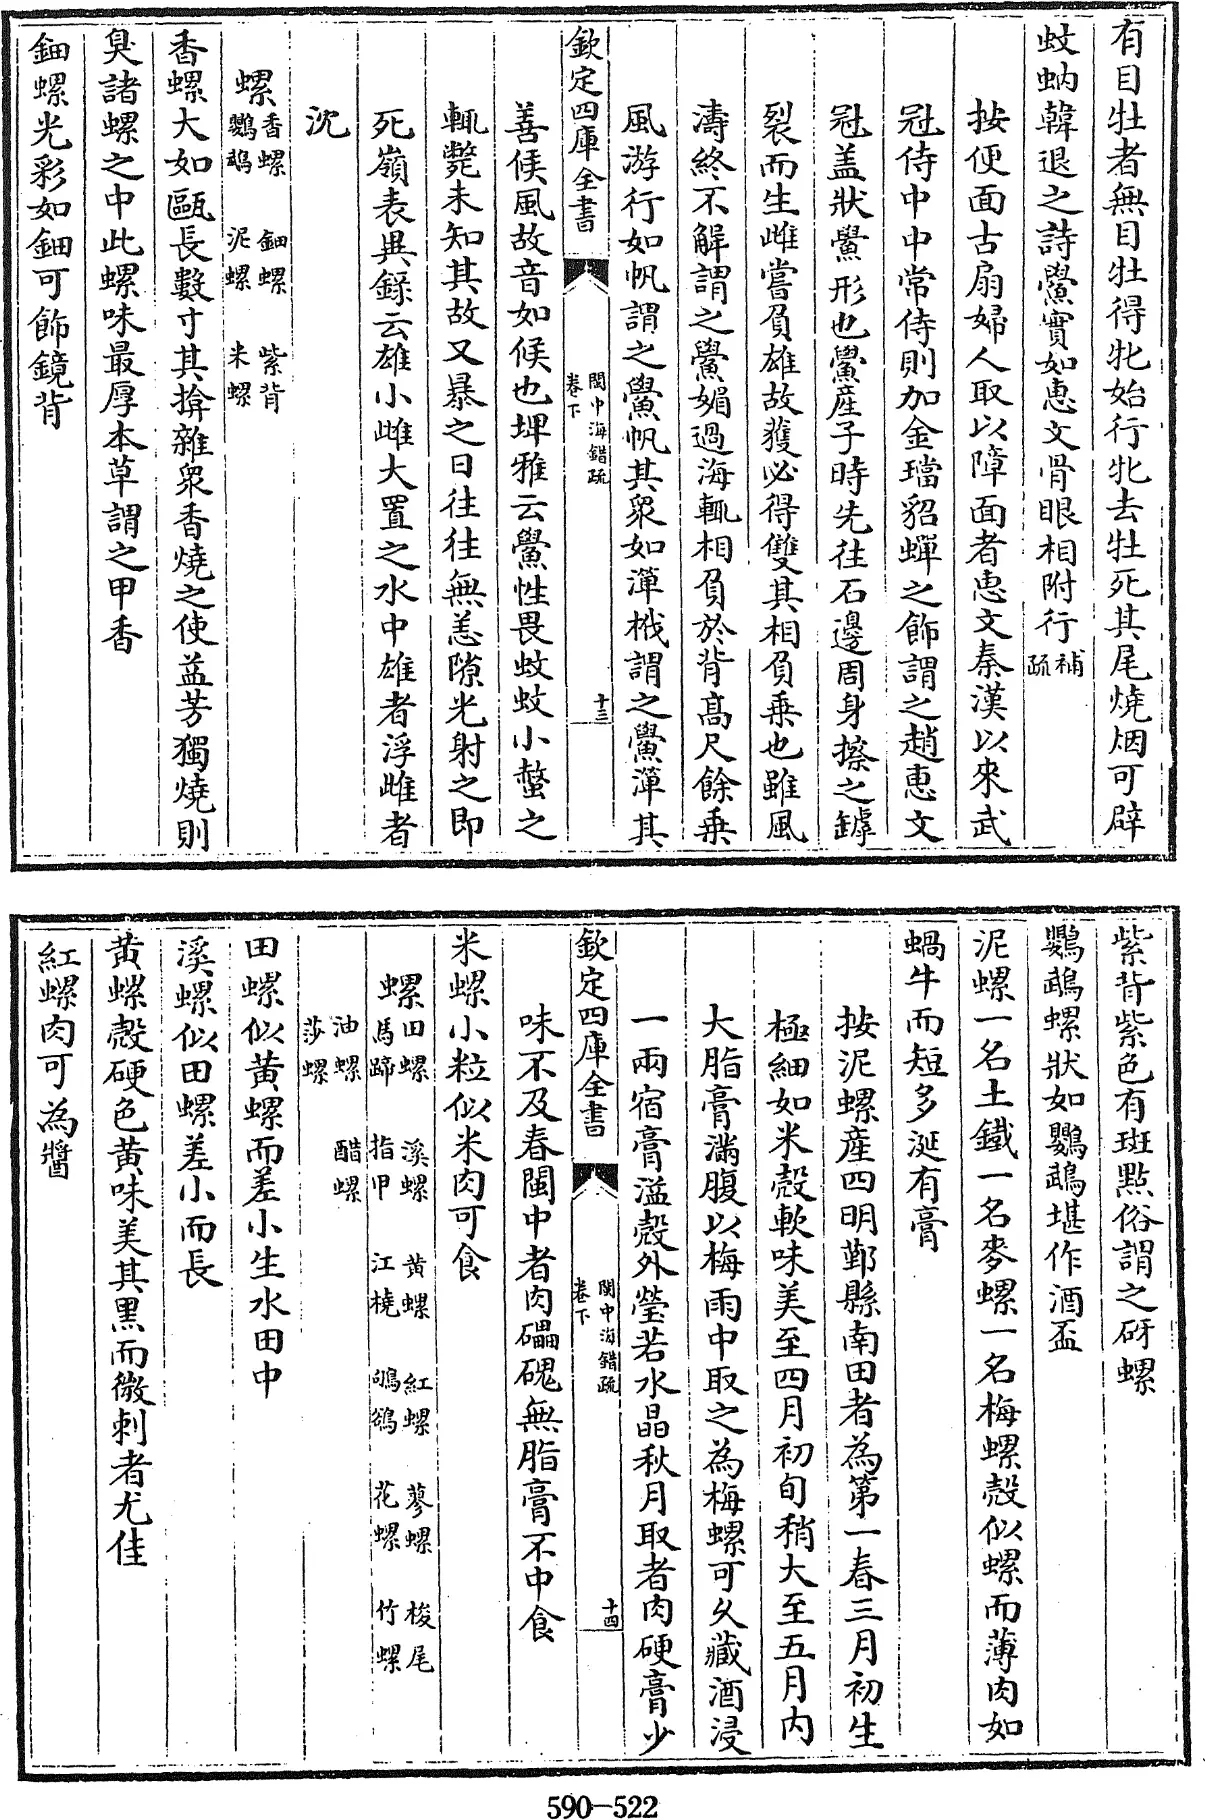 有目牡者無目牡得牝始行牝去牡死其尾燒烟可辟
蚊蚋韓退之詩鱟實如惠文骨眼相附行補疏
按便面古扇婦人取以障面者惠文秦漢以來武
冠侍中中常侍則加金璫貂蟬之飾謂之趙惠文
冠盖狀鱟形也鱟産子時先往石邊周身擦之罅
裂而生雌嘗負雄故獲必得雙其相負乗也雖風
濤終不解謂之鱟媚過海輒相負於背髙尺餘乗
風游行如帆謂之鱟帆其衆如簰栰謂之鱟簰其
欽定四庫全書
閩中海錯疏
卷下
十三
善候風故音如候也埤雅云鱟性畏蚊蚊小螫之
輒斃未知其故又暴之日往往無恙隙光射之即
死嶺表異錄云雄小雌大置之水中雄者浮雌者
沉
螺香螺 鈿螺 紫背
鸚鵡 泥螺 米螺
香螺大如甌長數寸其揜雜衆香燒之使益芳獨燒則
臭諸螺之中此螺味最厚本草謂之甲香
鈿螺光彩如鈿可飾鏡背
紫背紫色有斑㸃俗謂之砑螺
鸚鵡螺狀如鸚鵡堪作酒盃
泥螺一名土鐵一名麥螺一名梅螺殼似螺而薄肉如
蝸牛而短多涎有膏
按泥螺産四明鄞縣南田者為第一春三月初生
極細如米殼軟味美至四月初旬稍大至五月内
大脂膏滿腹以梅雨中取之為梅螺可久藏酒浸
一兩宿膏溢殼外瑩若水晶秋月取者肉硬膏少
欽定四庫全書
閩中海錯疏
卷下
十四
味不及春閩中者肉礧磈無脂膏不中食
米螺小粒似米肉可食
螺田螺 溪螺 黄螺 紅螺 蓼螺 梭尾
馬蹄 指甲 江橈 鳲鵂 花螺 竹螺
油螺 醋螺
莎螺
田螺似黄螺而差小生水田中
溪螺似田螺差小而長
黄螺殼硬色黄味美其黒而微刺者尤佳
紅螺肉可為醬
590-522